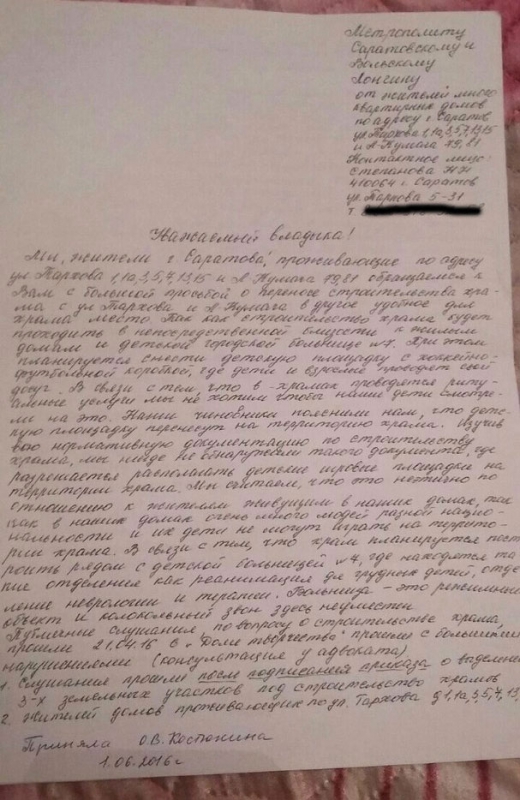 Метрополиту
Саратовскому и
Вольскому
Лонгину
от жителей много
квартирных домов
по адресу г Саратов
ул Тархова 1,1а,3,5,7,13,15
и Л-Кумача 79,81
Контактное лицо:
Степанова Н Н
410064 г. Саратов
ул. Тархова 5-31
т.
Уважаемый владыка!
Мы, жители г. Саратова, проживающие по адресу
ул. Тархова 1,1а,3,5,7,13,15 и Л-Кумача 79,81 обращаемся к
Вам с большой просьбой о переносе строительства хра-
ма с ул Тархова и Л-Кумача в другое удобное для
храма место. Так как строительство храма будет
проходить в непосредственной близости к жилым
домам и детской городской больнице №7. При этом
планируется снести детскую площадку с хоккейно-
футбольной коробкой, где дети и взрослые проводят свой
досуг. В связи с тем, что в храмах проводятся риту-
альные услуги мы не хотим чтобы наши дети смотре-
ли на это. Наши чиновники пояснили нам, что детс-
кую площадку перенесут на территорию храма. Изучив
всю нормативную документацию по строительству
храма, мы нигде не обнаружили такого документа, где
разрешается располагать детские игровые площадки на
территории храма. Мы считаем, что это неэтично по
отношению к жителям живущим в наших домах, так
как в наших домах очень много людей разной нацио-
нальности и их дети не могут играть на террито-
рии храма. В связи с тем, что храм планируется пост
роить рядом с детской больницей №7, где находятся та
кие отделения как реанимация для грудных детей, отде
ление неврологии и терапии. Больница - это
объект и колокольный звон здесь неуместен
Публичные слушания, по вопросу о строительстве храма,
прошли 21.04.16 в "Доме творчества" прошли с большими
нарушениями (консультация у адвоката)
1. Слушания прошли после подписания приказа о выделении
3-х земельных участков под строительство храмов
2. Жителей домов проживающих по ул. Тархова д 1,1а,3,5,7,13,
Приняла О.В. Костюхина
1.06.2016 г